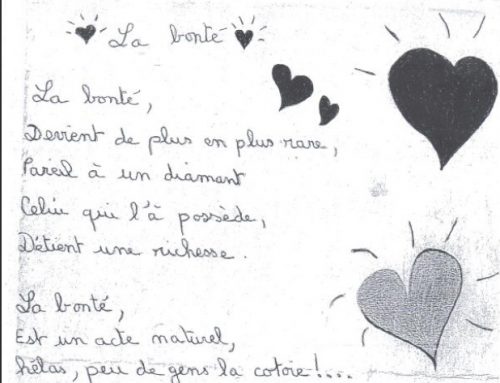 La bonté
La bonté,
Devient de plus en plus rare,
Pareil à un diamant
Celui qui l'à possède,
Détient une richesse.
La bonté,
Est un acte naturel,
hélas, peu de gens la cotoie !....